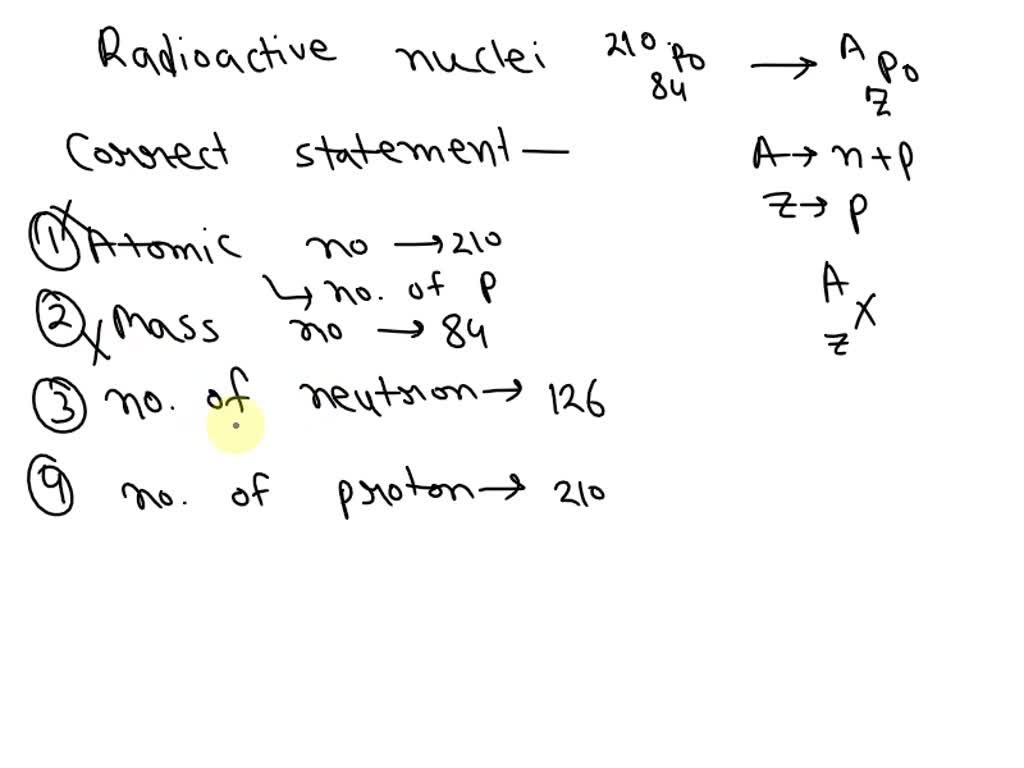 Radioactive nuclei ²¹⁰₈₄Po → ᴬ_Z Po
Correct statement — A → n + p
Z → p
① Atomic no → 210
↳ no. of p
ᴬ_Z X
② Mass no → 84
③ no. of neutron → 126
④ no. of proton → 210